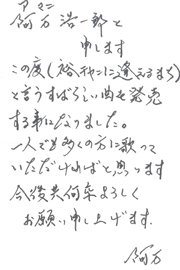 アマン
阿万浩一郎と
申します
この度(裕ちゃんに逢えるまち)
と言うすばらしい曲を発売
する事になりました。
一人でも多くの方に歌って
いただければと思います
今後共何卒よろしく
お願い申し上げます.
阿万